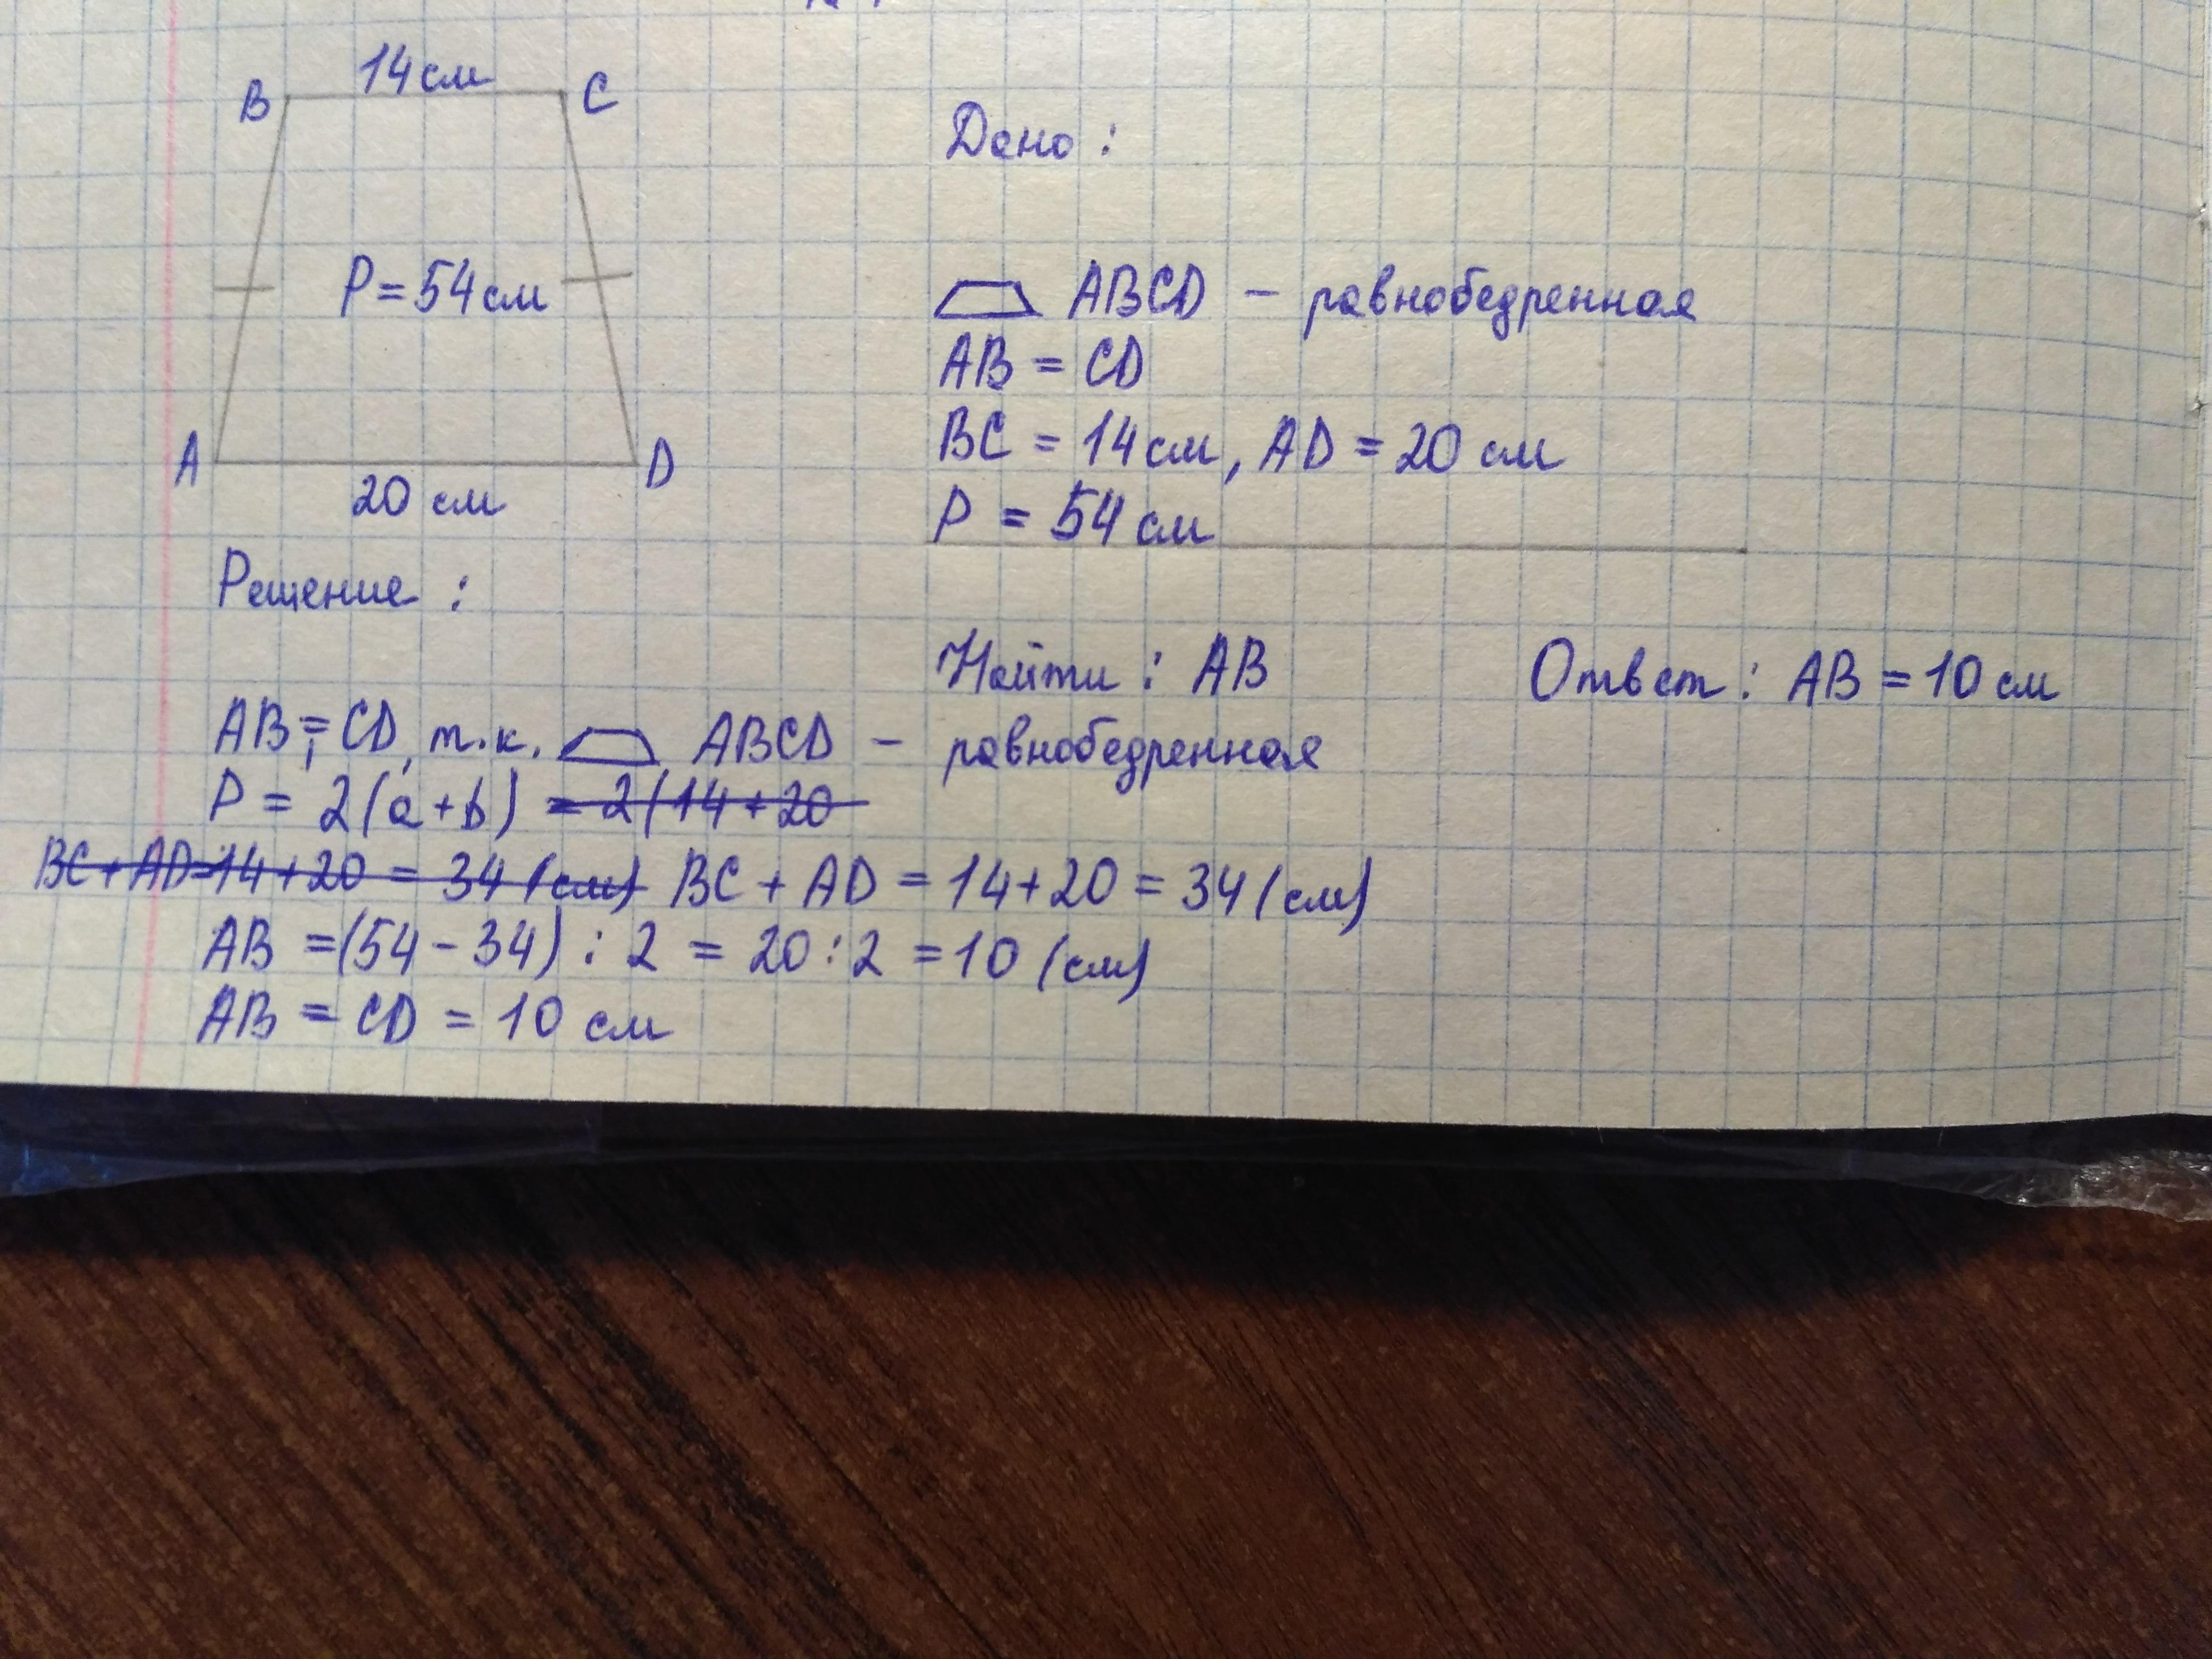 14 см
B
C
P = 54 см
A
D
20 см
Дано :
ABCD - равнобедренная
AB = CD
BC = 14 см, AD = 20 см
P = 54 см
Решение :
Найти : AB
Ответ : AB = 10 см
AB = CD, т.к. ABCD - равнобедренная
P = 2(a+b) = 2(14+20
BC + AD = 14 + 20 = 34 (см) BC + AD = 14 + 20 = 34 (см)
AB = (54 - 34) : 2 = 20 : 2 = 10 (см)
AB = CD = 10 см